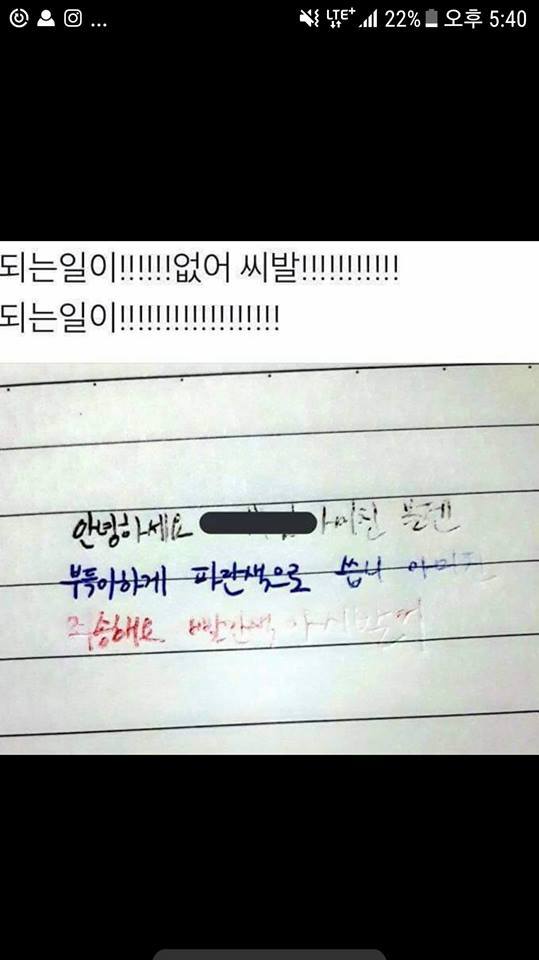 ... LTE+ 22% 오후 5:40
되는일이!!!!!!없어 씨발!!!!!!!!!!!
되는일이!!!!!!!!!!!!!!!!!!
안녕하세요 아미친 볼텐
부득이하게 파란색으로 씁니 아미친
죄송해요 빨간색 아시발여